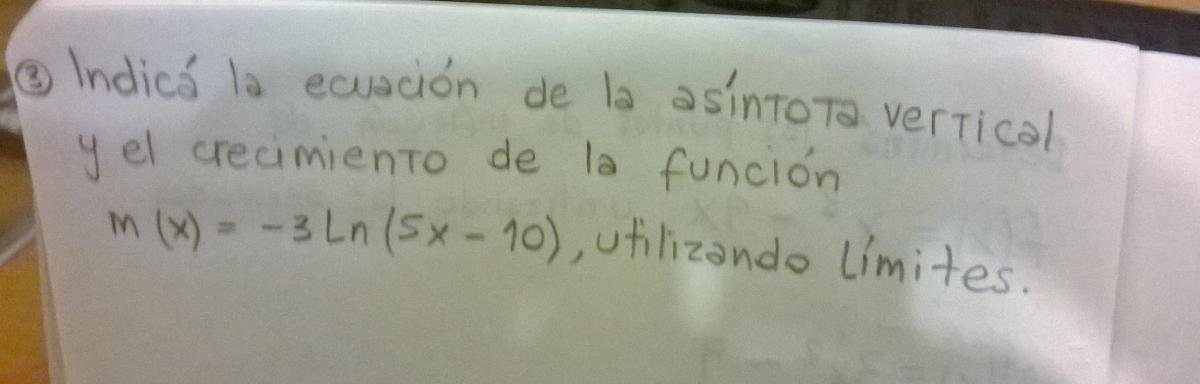 ③ Indicá la ecuación de la asíntota vertical
y el crecimiento de la función
m(x) = -3Ln(5x - 10), utilizando límites.